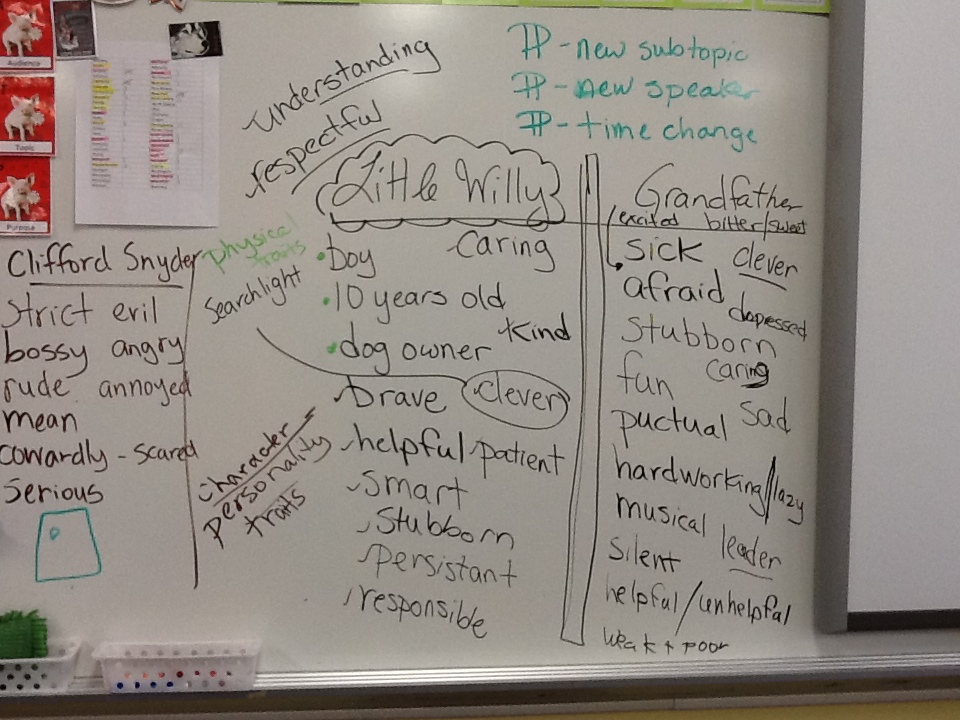 Audience
Topic
Purpose
understanding
respectful
TP - new subtopic
TP - new speaker
TP - time change
Clifford Snyder
strict evil
bossy angry
rude annoyed
mean
cowardly - scared
serious
physical
traits
Searchlight
character
personality
traits
Little Willy
boy caring
10 years old
kind
dog owner
brave clever
helpful patient
smart
stubborn
persistant
responsible
Grandfather
excited bitter/sweet
sick clever
afraid depressed
stubborn
fun caring
puctual sad
hardworking//lazy
musical leader
silent
helpful/unhelpful
weak + poor